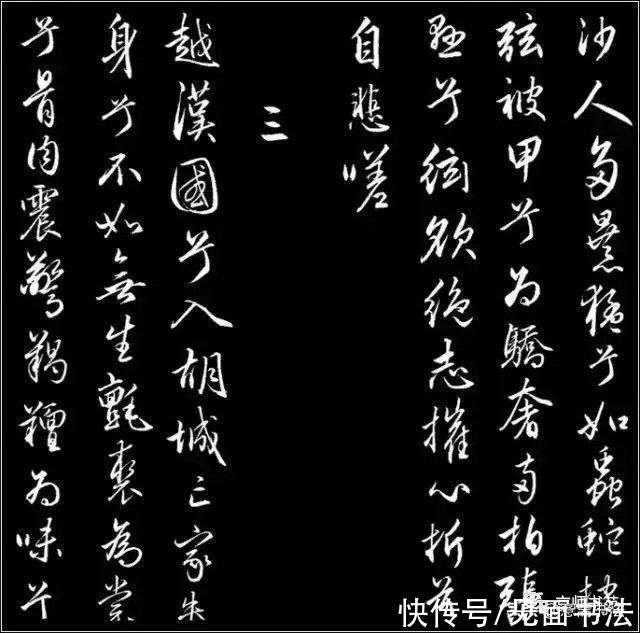 沙人多暴猛兮如蟲蛇控
弦被甲兮为驕奢两拍張
兮弦欲絶志摧心折兮
自悲嗟
三
越漢國兮入胡城亡家失
身兮不如無生氈裘為裳
兮骨肉震驚羯羶为味兮
快传号/面书法